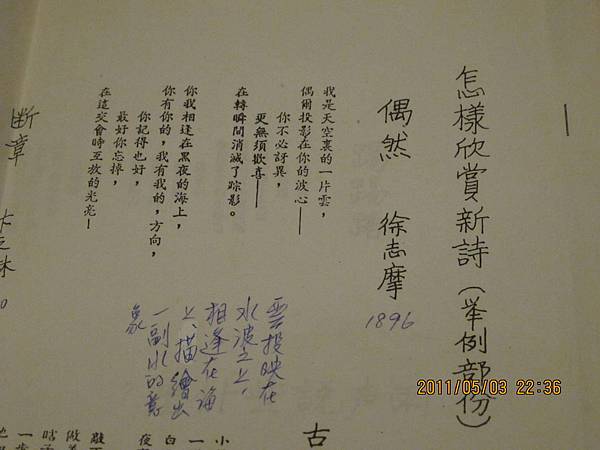 怎樣欣賞新詩(举例部份)
偶然 徐志摩
1896
我是天空裏的一片雲,
偶爾投影在你的波心—
你不必訝異,
更無須歡喜—
在轉瞬間消滅了踪影。
你我相逢在黑夜的海上,
你有你的,我有我的,方向,
你記得也好,
最好你忘掉,
在這交會時互放的光亮!
雲投映在
水波之上,
相逢在海
上、描繪出
一副水的意
象
断章
古
小
一
白
夜
2011/05/03 22:36